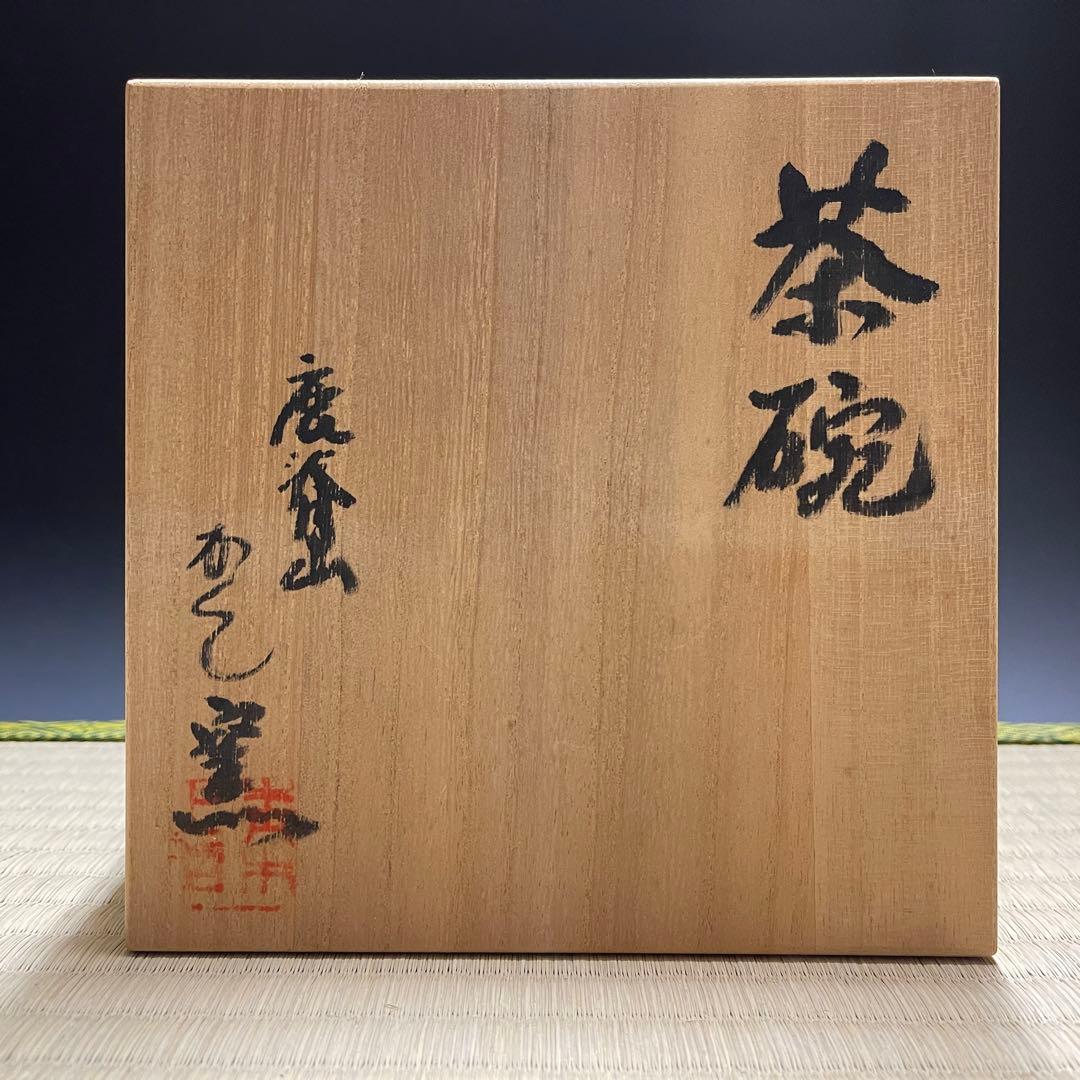 茶碗
鹿脊山
かくし窯